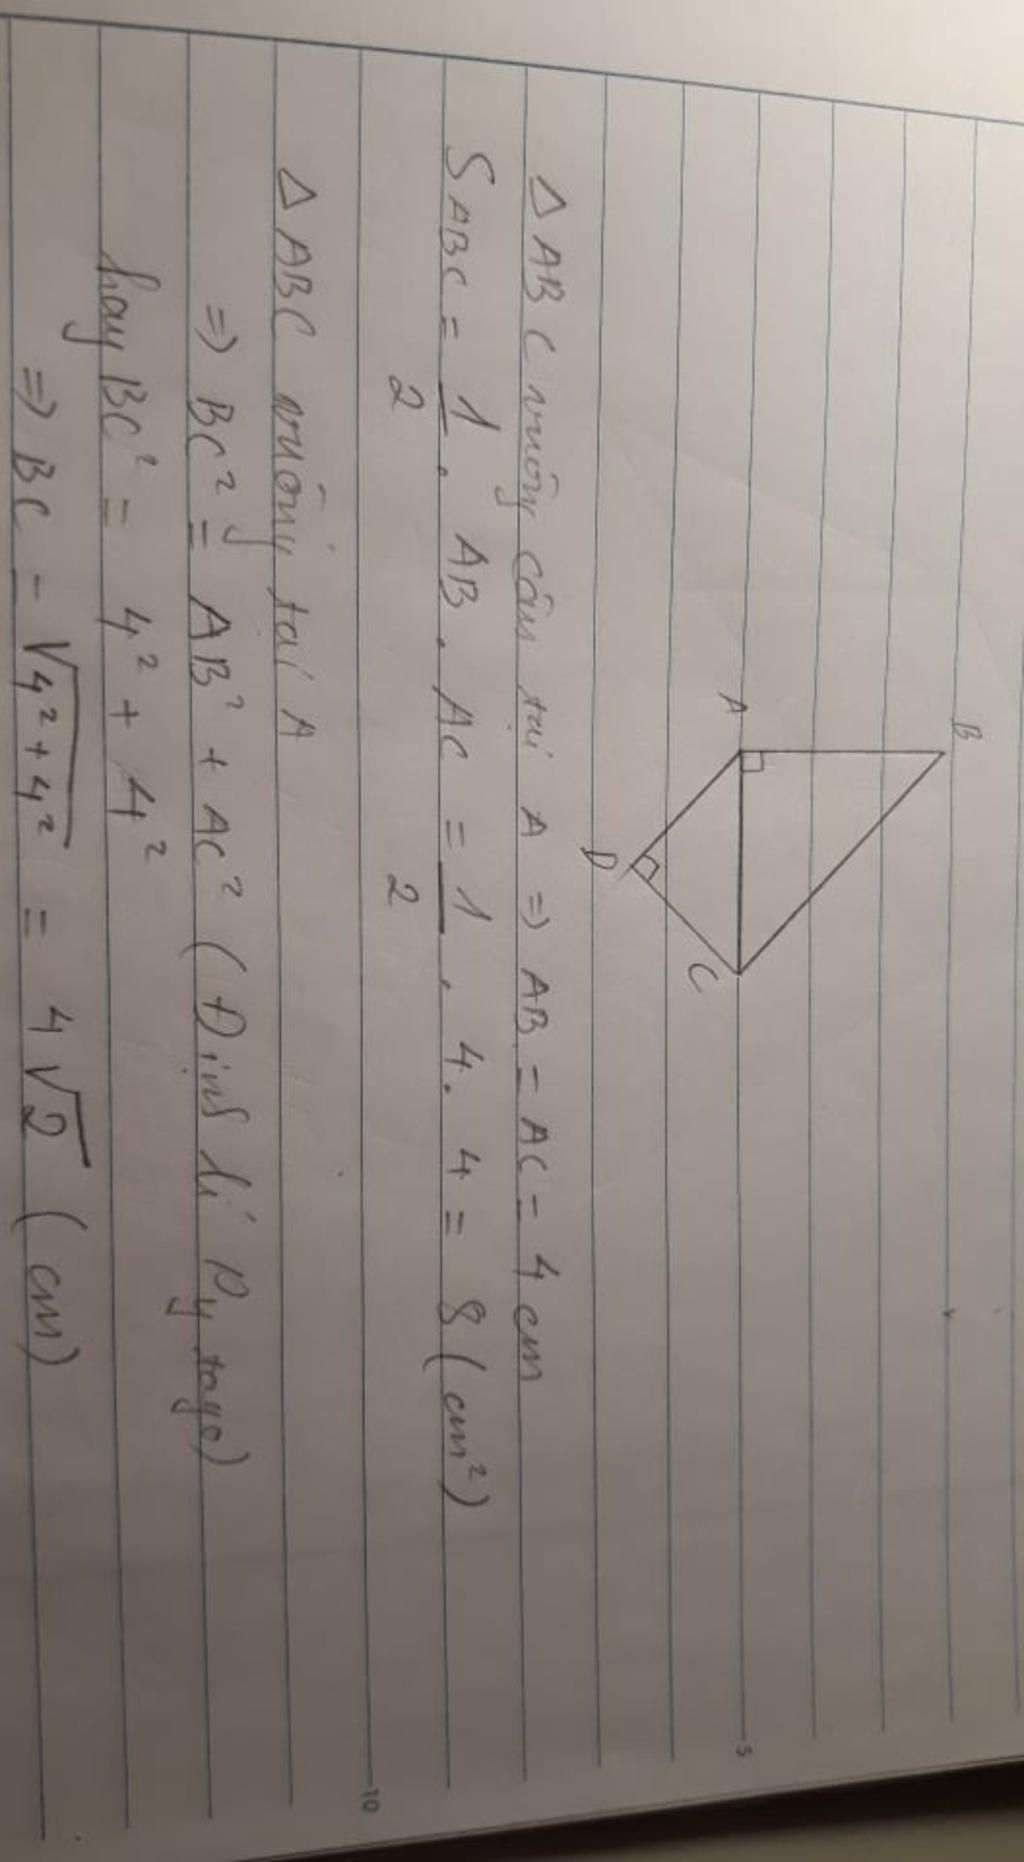 B
A
C
D
5
Δ ABC vuông cân tại A => AB = AC = 4 cm
S ABC = 1/2 . AB . AC = 1/2 . 4 . 4 = 8 (cm²)
10
Δ ABC vuông tại A
=> BC² = AB² + AC² (Định lí Pytago)
hay BC² = 4² + 4²
=> BC = √4²+4² = 4√2 (cm)